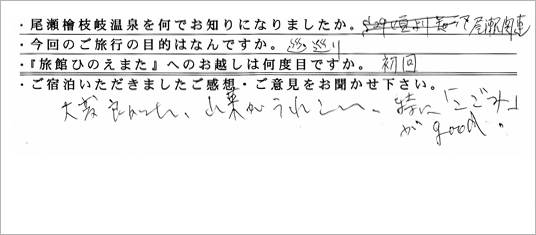 ・尾瀬檜枝岐温泉を何でお知りになりましたか。 尾瀬関連
・今回のご旅行の目的はなんですか。 ♨♨り
・『旅館ひのえまた』へのお越しは何度目ですか。 初回
・ご宿泊いただきましたご感想・ご意見をお聞かせ下さい。
大変良かった、山菜がうれしい、特に「こごみ」
がgood。